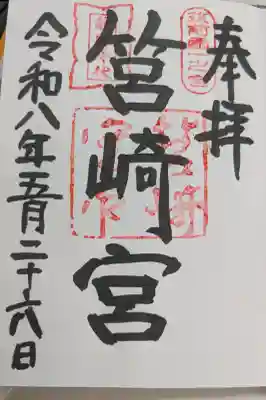 奉拝
筥崎宮
令和八年五月二十六日